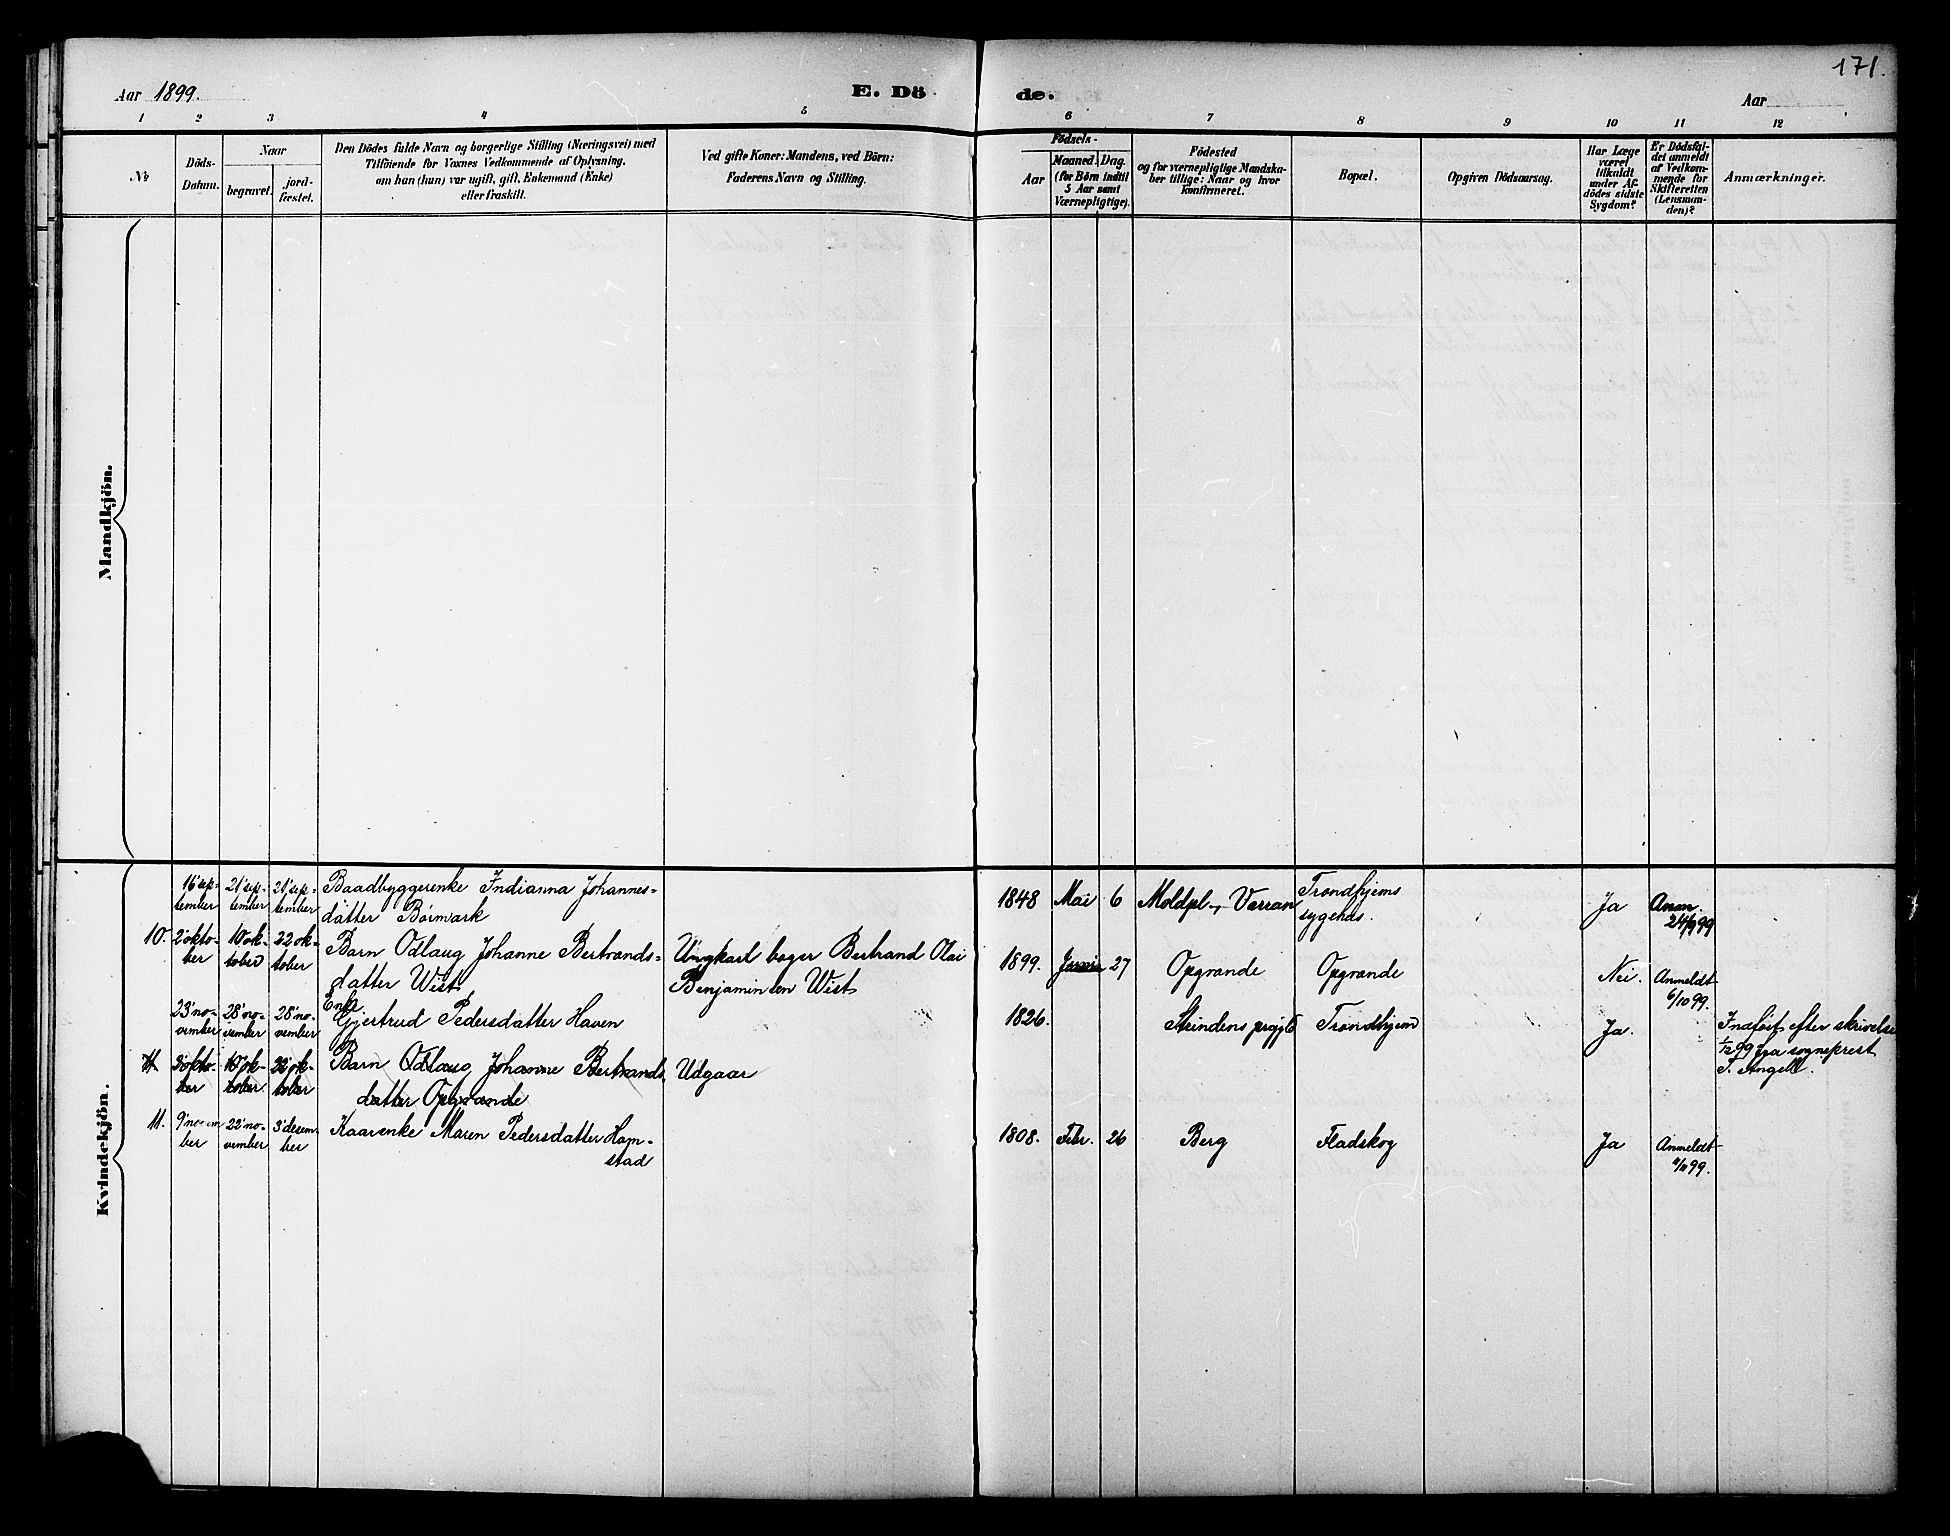 171.
Aar 1899.
E. Dö
de.
Aar
1 2 3 4 5 6 7 8 9 10 11 12
No
Döds-
Datum.
Naar
begravet.
jord-
fæstet.
Den Dödes fulde Navn og borgerlige Stilling (Næringsvei) med
Tilföiende for Voxnes Vedkommende af Oplysning,
om han (hun) var ugift, gift, Enkemand (Enke)
eller fraskilt.
Ved gifte Koner: Mandens, ved Börn:
Faderens Navn og Stilling.
Födsels-
Aar
Maaned.
Dag.
(for Börn indtil
5 Aar samt
Værnepligtige).
Födested
og for værnepligtige Mandska-
ber tillige: Naar og hvor
konfirmeret.
Bopæl.
Opgiven Dödsaarsag.
Har Læge
været
tilkaldt
under Af-
dödes sidste
Sygdom?
Er Dödsfal-
det anmeldt
af Vedkom-
mende for
Skifteretten
(Lensman-
den)?
Anmærkninger.
Mandkjön.
Kvindekjön.
16' sep-
tember
21' sep-
tember
21' sep-
tember
Baadbyggerenke Indianna Johannes-
datter Börmark
1848 Mai 6
Moldpl., Værran
Trondhjems
sygehus.
Ja
Anm.
21/9 99
10.
2' okto-
ber
10' ok-
tober
22' ok-
tober
Barn Odlaug Johanne Bertrands-
datter Wist
Ungkarl bager Bertrand Olai
Benjaminsen Wist
1899. 27
Opgrande
Opgrande
Nei.
Anmeldt
6/10 99.
23' no-
vember
28' no-
vember
28' no-
vember
Enke
Gjertrud Pedersdatter Haven
1826.
Trondhjem
Ja.
Indfört efter skrivelse
1/12 99 fra sogneprest
T. Angell.
11
2' okto-
ber
10' ok-
tober
22' ok-
tober
Barn Odlaug Johanne Bertrands-
datter Opgrande
Udgaar
11.
9' novem
ber
22' no-
vember
3' desem-
ber
Kaarenke Maren Pedersdatter Ham-
stad
1808. Febr. 26
Berg
Fladskog
Ja
Anmeldt
11/11 99.